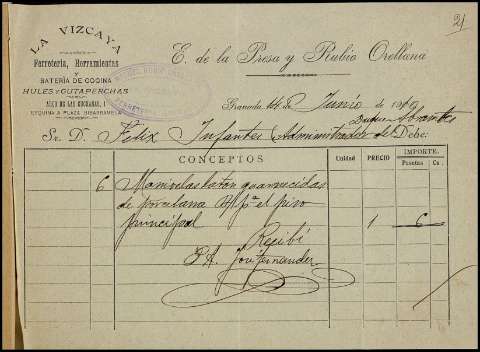 21
LA VIZCAYA
Ferretería, Herramientas
Y
BATERÍA DE COCINA
HULES Y GUTAPERCHAS
ESQUINA A PLAZA BIBARRAMBLA
E. de la Presa y Rubio Orellana
Granada 14 de Junio de
Duque Abrantes
Sr. D. Felix Infantes Administrador del Debe:
CONCEPTOS Unidad PRECIO IMPORTE.
Pesetas Cs.
6 Manivelas laton guarnecidas
de porcelana pª el piso
principal 1 6
Recibí
P.A. José Fernandez